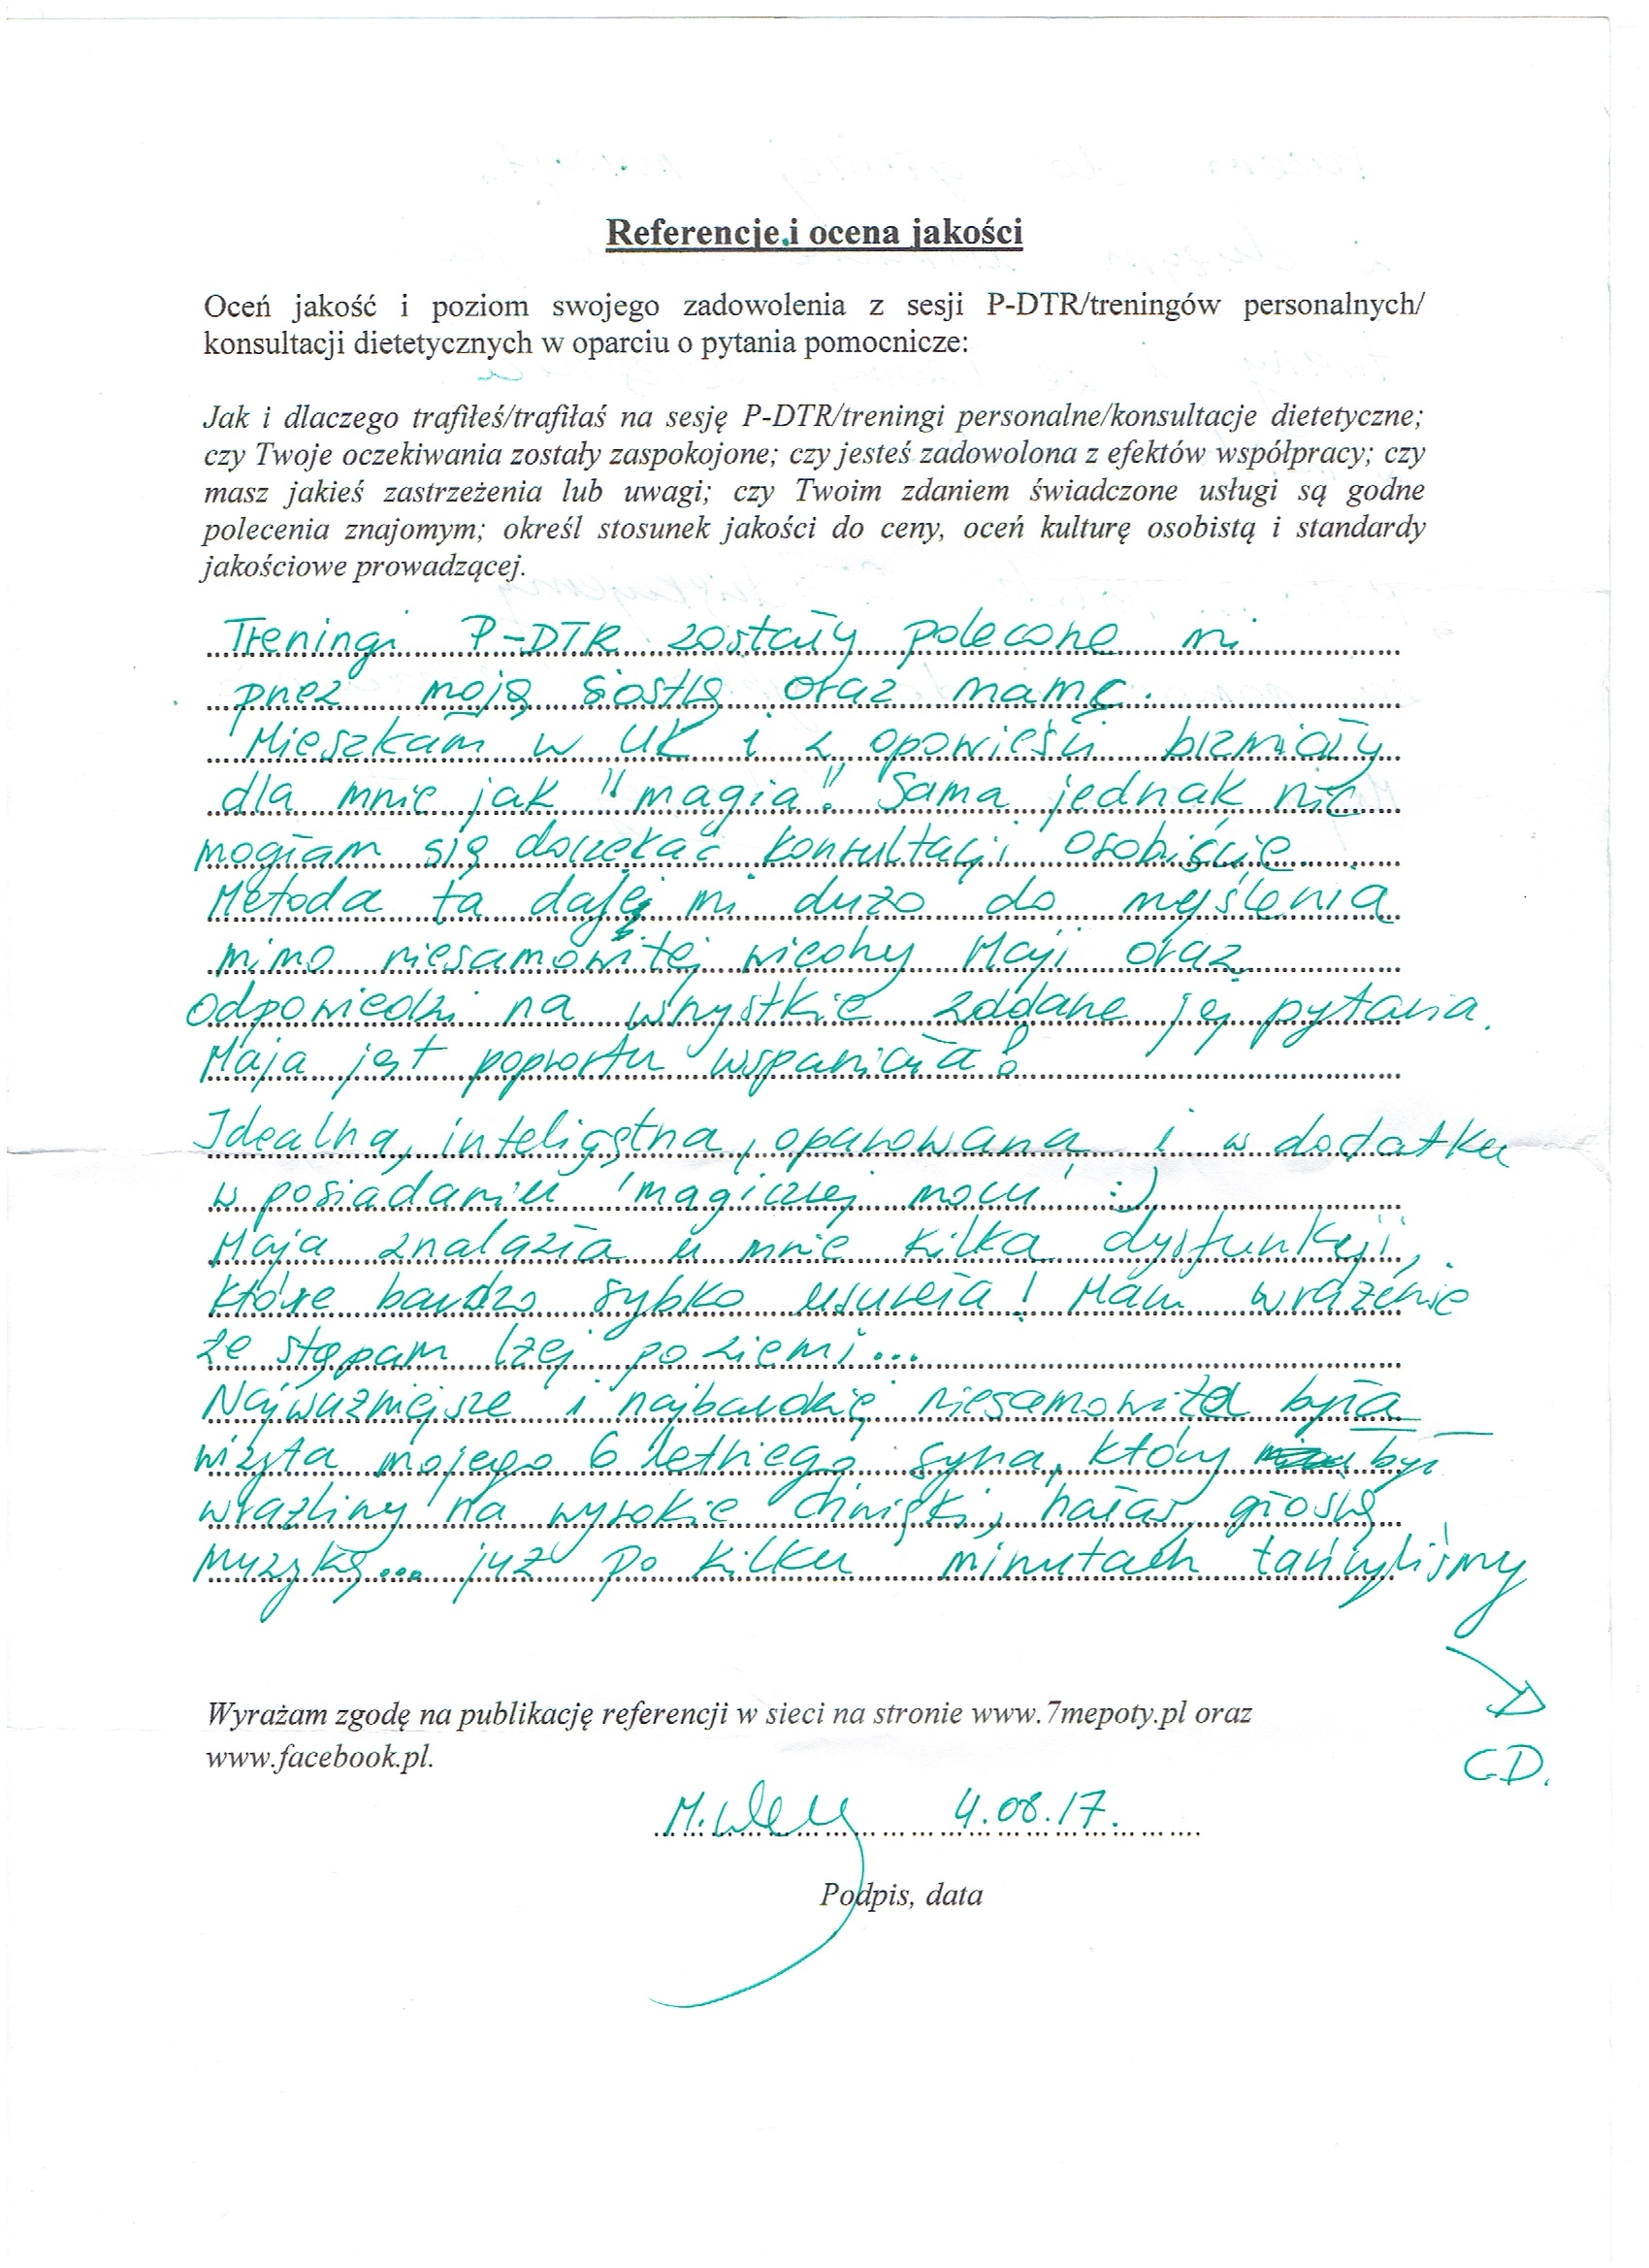 Referencje i ocena jakości
Oceń jakość i poziom swojego zadowolenia z sesji P-DTR/treningów personalnych/
konsultacji dietetycznych w oparciu o pytania pomocnicze:
Jak i dlaczego trafiłeś/trafiłaś na sesję P-DTR/treningi personalne/konsultacje dietetyczne;
czy Twoje oczekiwania zostały zaspokojone; czy jesteś zadowolona z efektów współpracy; czy
masz jakieś zastrzeżenia lub uwagi; czy Twoim zdaniem świadczone usługi są godne
polecenia znajomym; określ stosunek jakości do ceny, oceń kulturę osobistą i standardy
jakościowe prowadzącej.
Treningi P-DTR zostały polecone mi
przez moją siostrę oraz mamę.
Mieszkam w UK i z opowieści brzmiały
dla mnie jak "magia". Sama jednak nie
mogłam się doczekać konsultacji osobiście
Metoda ta daje mi dużo do myślenia
mimo niesamowitej wiedzy Maji oraz
odpowiedzi na wszystkie zadane jej pytania.
Maja jest poprostu wspaniała!
Idealna, inteligętna, opanowana i w dodatku
w posiadaniu 'magicznej mocy' :)
Maja znalazła u mnie kilka dysfunkcji,
które bardzo sybko usunęła! Mam wrażenie
że stąpam lżej po ziemi...
Najważniejsze i najbardziej niesamowita była
wizyta mojego 6 letniego syna, który był
wrażliwy na wysokie dźwięki, hałas, głośną
muzykę... już po kilku minutach tańczyliśmy
C.D.
Wyrażam zgodę na publikację referencji w sieci na stronie www.7mepoty.pl oraz
www.facebook.pl.
4.08.17.
Podpis, data